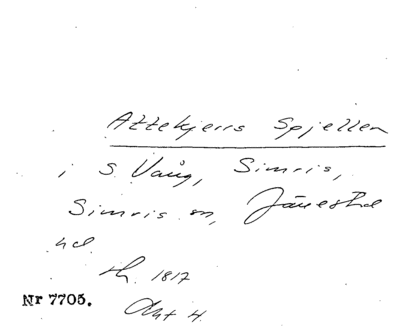 Attekjerrs Spjellen
i S. Vång, Simris,
Simris sn, Järrestad
hd.
th. 1817
Akt 4.
Nr 7705.